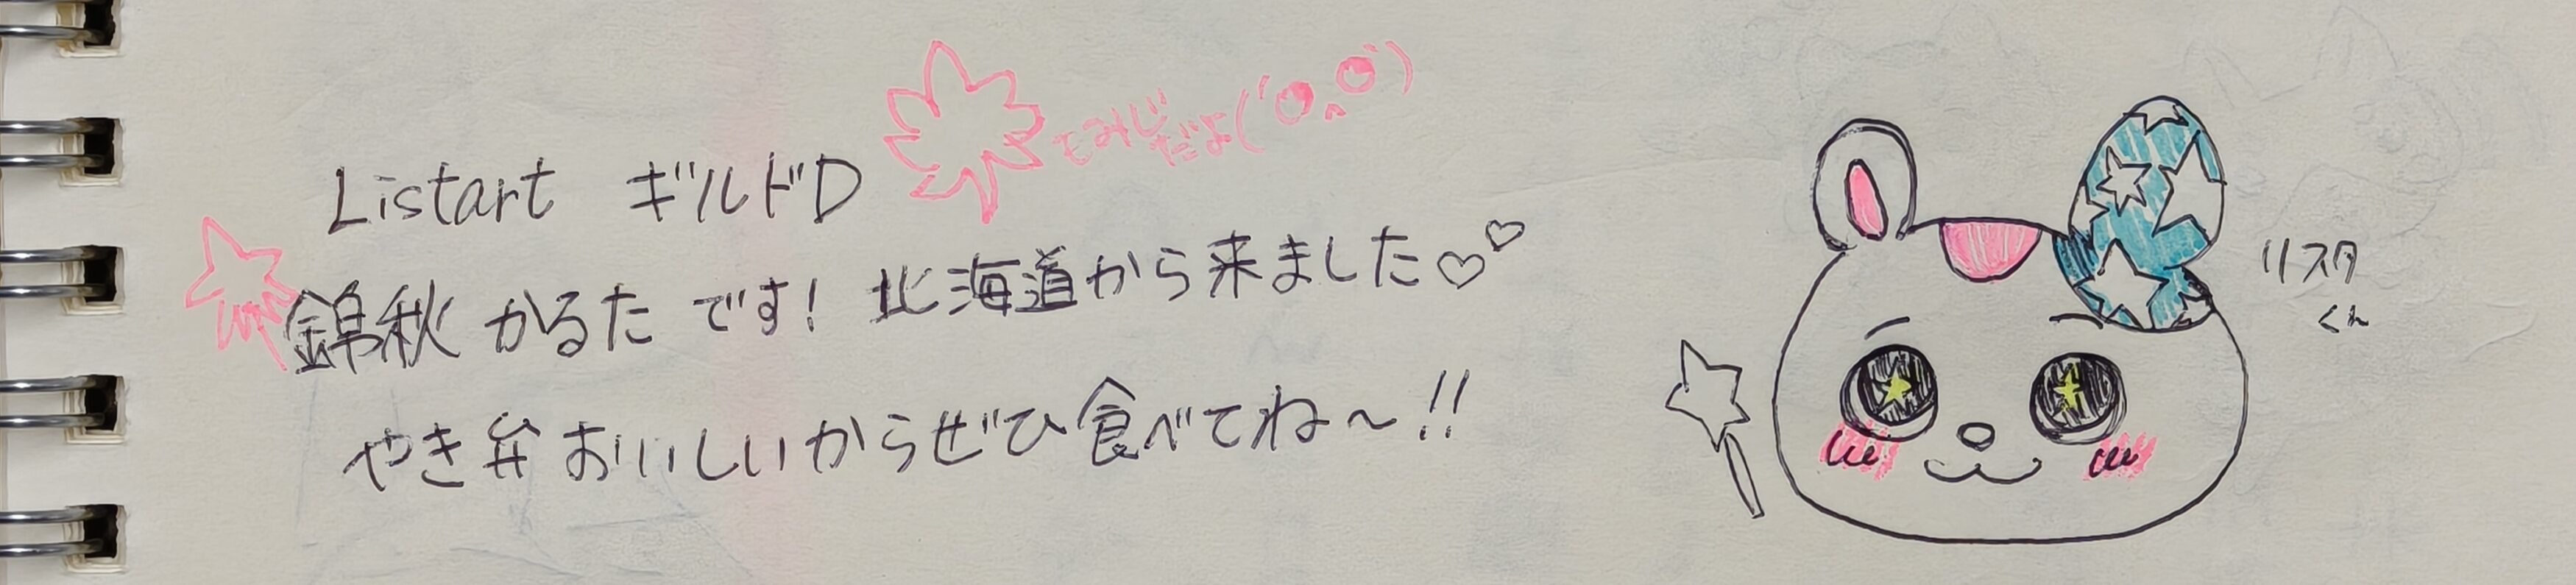 Listart ギルドD
もみじ
だよ(´O^O`)
錦秋 かるた です! 北海道から来ました♡♡
やき弁 おいしいからぜひ食べてね～!!
リスタ
くん